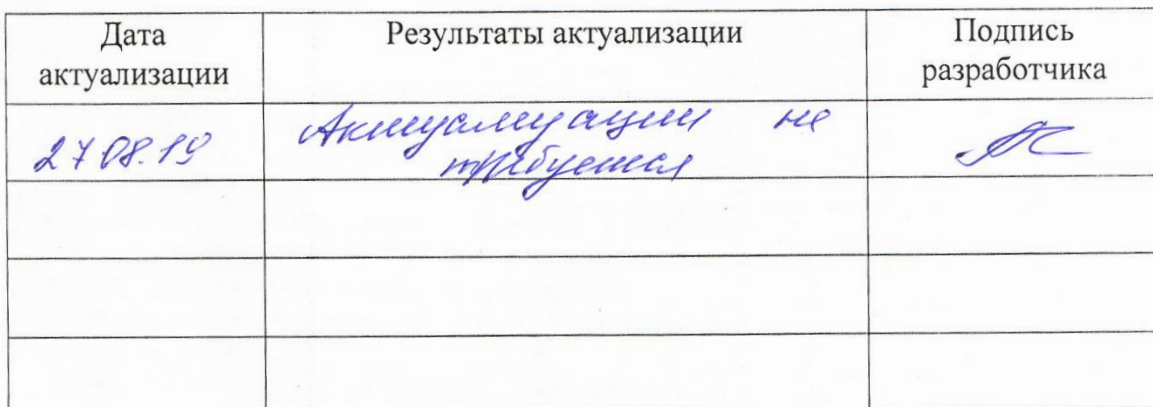 Дата актуализации
Результаты актуализации
Подпись разработчика
27.08.19
Актуализации не
требуется